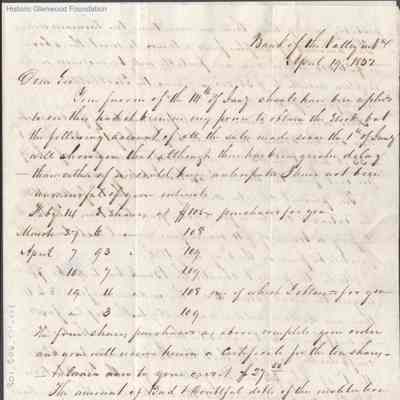 Historic Glenwood Foundation
Bank of the Valley in Va
April 19th 1852
Dear Sir
Your favour of the 14th of Jany should have been replied
to on this had it been in my power to obtain the Stock but
the following account of all the sales made since the 1st of Jany
will show you that although there has been greater delay
than either of us could have anticipated I have not been
unmindful of your interests
Feby 14 3 shares at $105 purchased for you
March 27 6 " 108
April 7 93 " 109
10 9 109
19 4 108 one of which I obtained for you
3 109
The four shares purchased as above complete your order
and you will receive herein a Certificate for the ten shares
balance now to your credit $27
The amount of Bad & doubtful debts of the institution